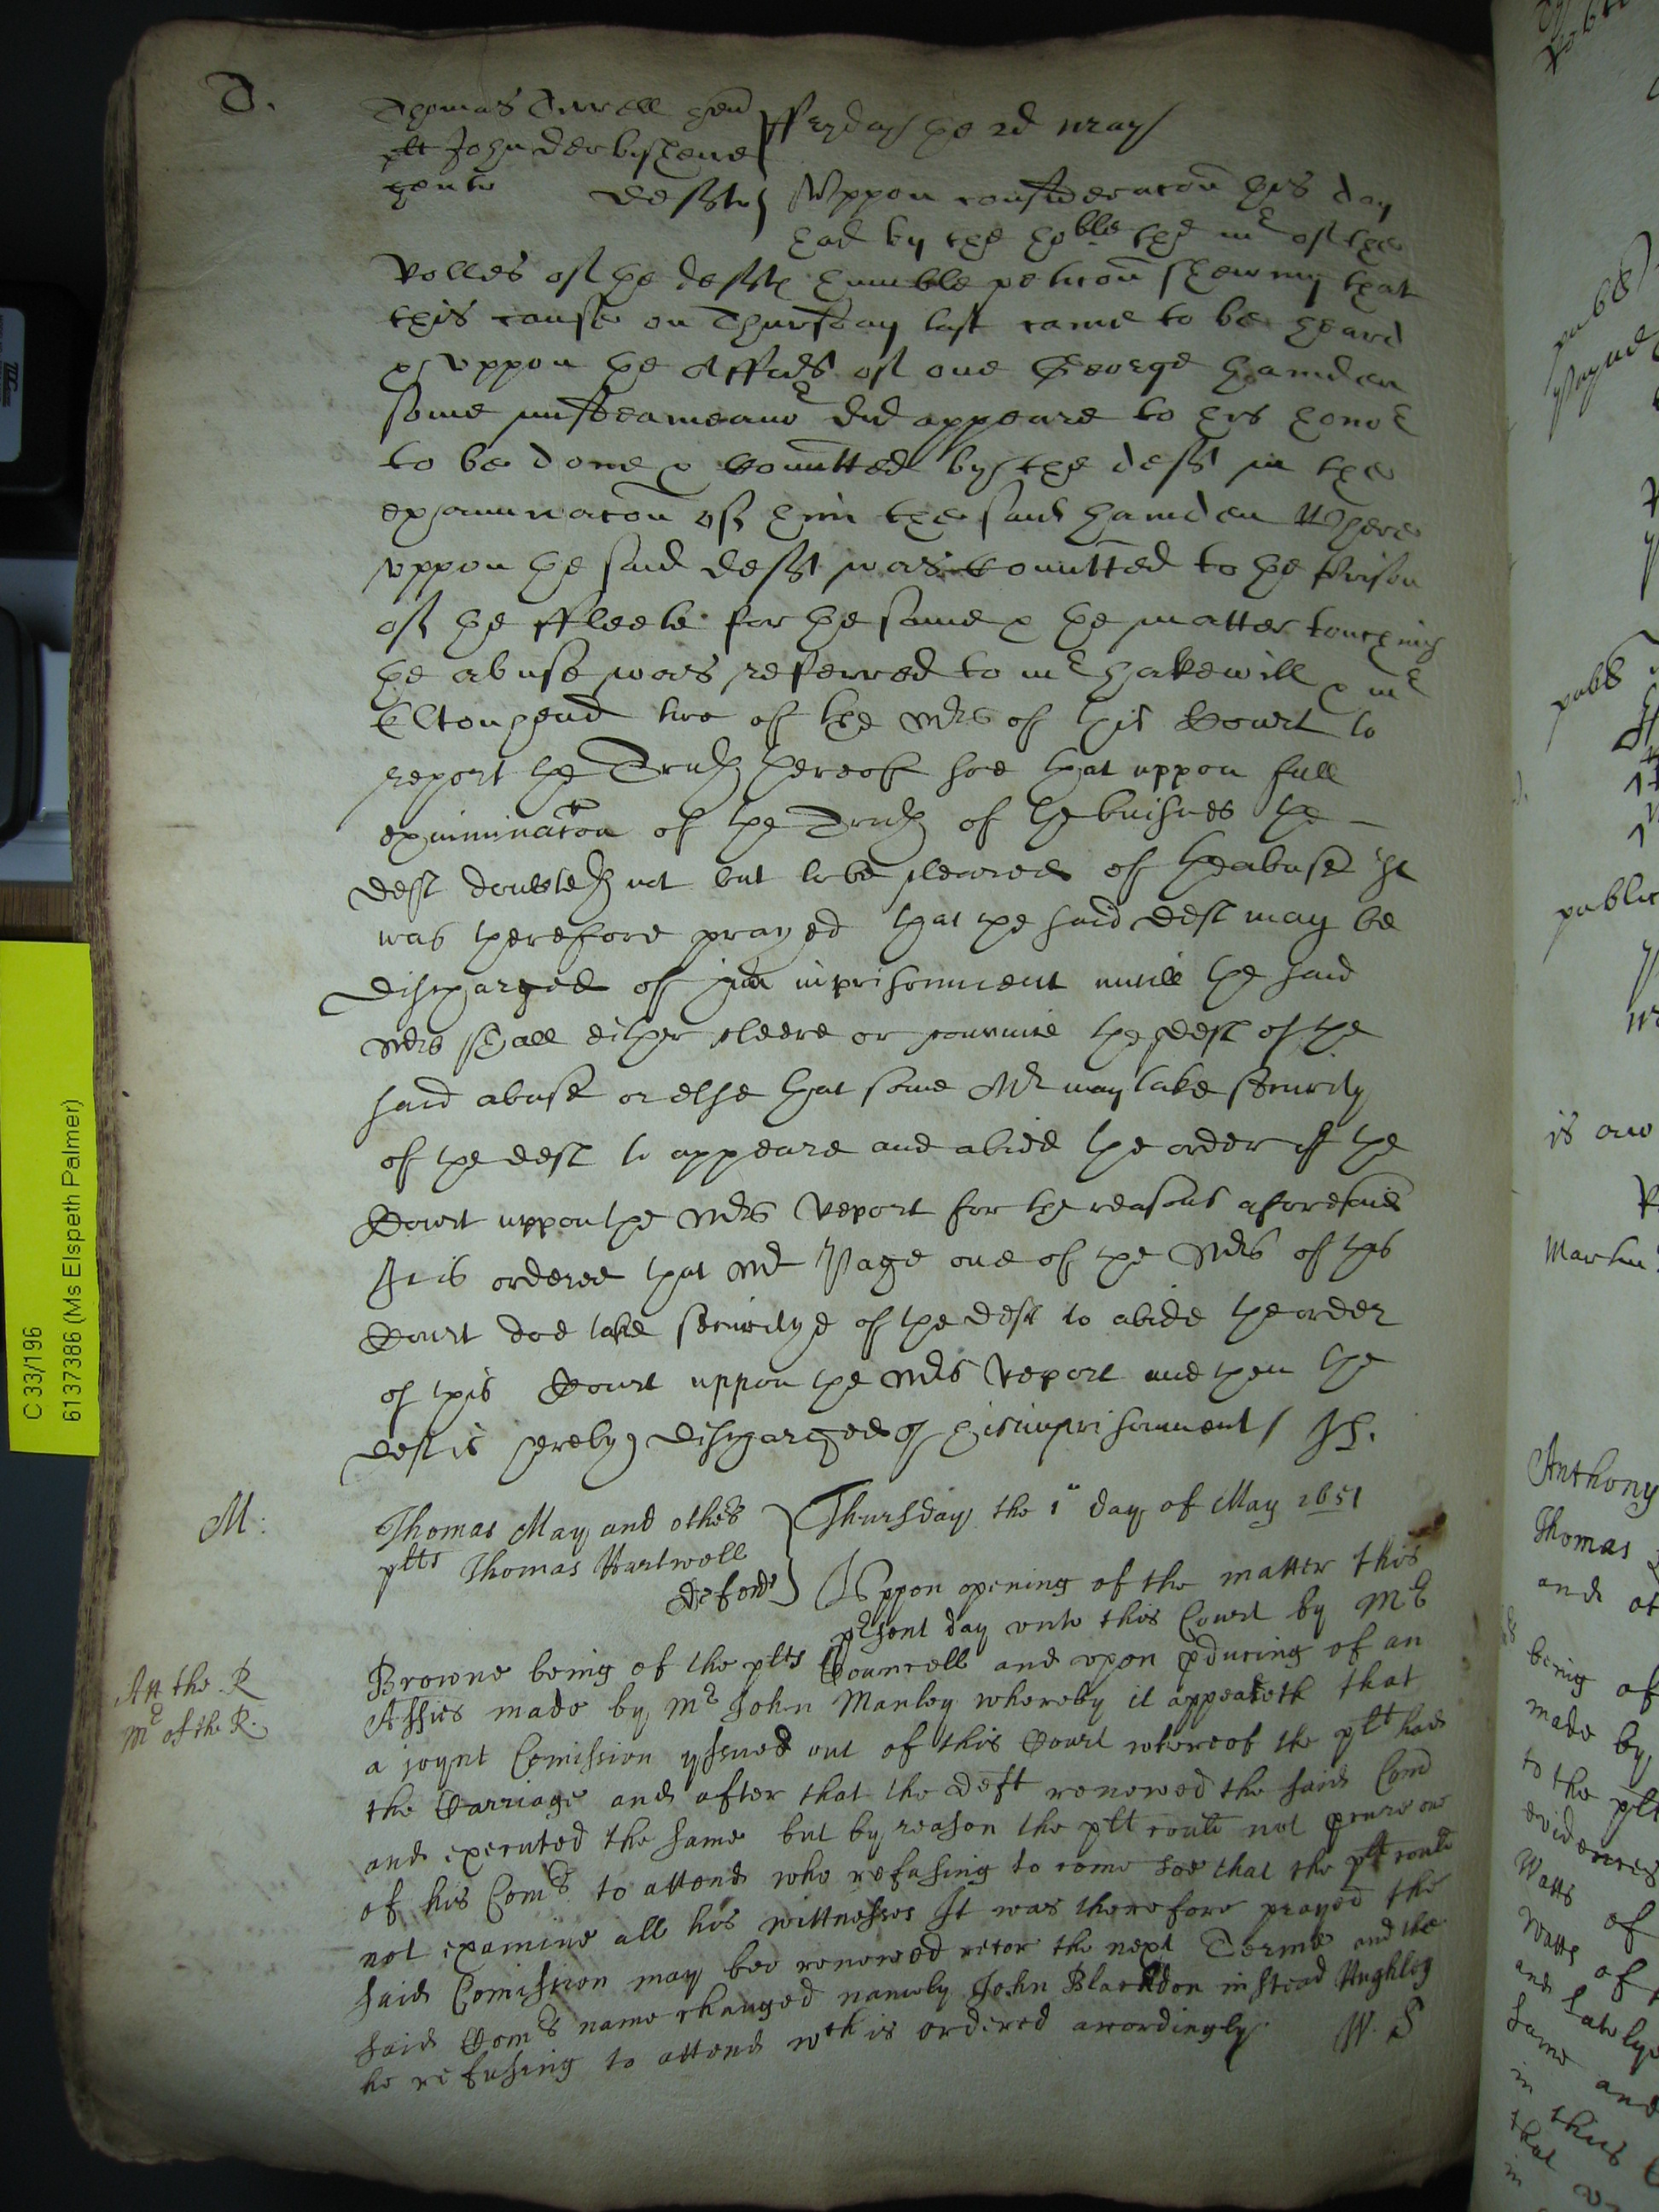 D.
Thomas Tirrell gen
plt John Derbishene
gent deft
ffryday the 2d May
Uppon consideracon this day
had by the hoble the mr of the
Rolles of the defts humble peticon shewing that
this cause on Thursday last came to be heard
& uppon the Affid of one George Hamden
some misdeameanor did appeare to his honor
to be done & comitted by the deft in the
examinacon of him the said Hamden Where
uppon the said deft was comitted to the Prison
of the ffleete for the same & the matter touching
the abuse was referred to mr Hakewill & mr
Eltonhead two of the Mrs of this Court to
report the Truth thereof soe that uppon full
examinacon of the Truth of the buisnes the
deft doubteth not but to be cleared of the abuse It
was therefore prayed that the said deft may be
discharged of his imprisonment untill the said
Mrs shall either cleere or convince the deft of the
said abuse or else that some Mr may take security
of the deft to appeare and abide the order of the
Court uppon the Mrs Report for the reasons aforesaid
It is ordered that Mr Page one of the Mrs of this
Court doe take securitye of the deft to abide the order
of this Court uppon the Mrs Report and then the
deft is hereby discharged of his imprisonment /
M:
Thomas May and others
plts Thomas Hartwell
defend
Thursday the 1st day of May 1651
Uppon opening of the matter this
prsent day unto this Court by Mr
Att the R
Mr of the R.
Browne being of the plts Councell and upon pducing of an
Affid made by Mr John Manley whereby it appeareth that
a joynt Comission yssued out of this Court whereof the plt had
the Carriage and after that the Deft renewed the said Com
and executed the same but by reason the plt could not pcure one
of his Comrs to attend who refusing to come soe that the plt could
not examine all his wittnesses It was therefore prayed the
said Comission may bee renewed retor the next Terme and the
said Comrs name changed namely John Blackdon instead Hughley
he refusing to attend wch is ordered accordingly. W. S
C 33/196
61377386 (Ms Elspeth Palmer)
public
is
Martin
Anthony
Thomas
and ot
being of
made by
to the plt
evidences
Watts of
Watts of
and lately
same and
in this
that
in